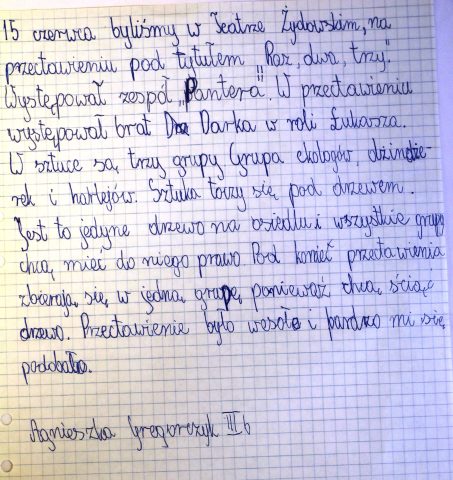 15 czerwca byliśmy w Teatrze Żydowskim, na
przectawieniu pod tytułem „Raz, dwa, trzy".
Występował zespół „Pantera". W przectawieniu
występował brat Darka w roli Łukasza.
W sztuce są trzy grupy Grupa ekologów, dzindzie-
rek i hoklejów. Sztuka toczy się pod drzewem.
Jest to jedyne drzewo na osiedlu i wszystkie grupy
chcą mieć do niego prawo. Pod koniec przectawienia
zbierają się w jedną grupę, ponieważ chcą ściąć
drzewo. Przectawienie było wesołe i pardzo mi się
podobało.
Agnieszka Gregorczyk III b